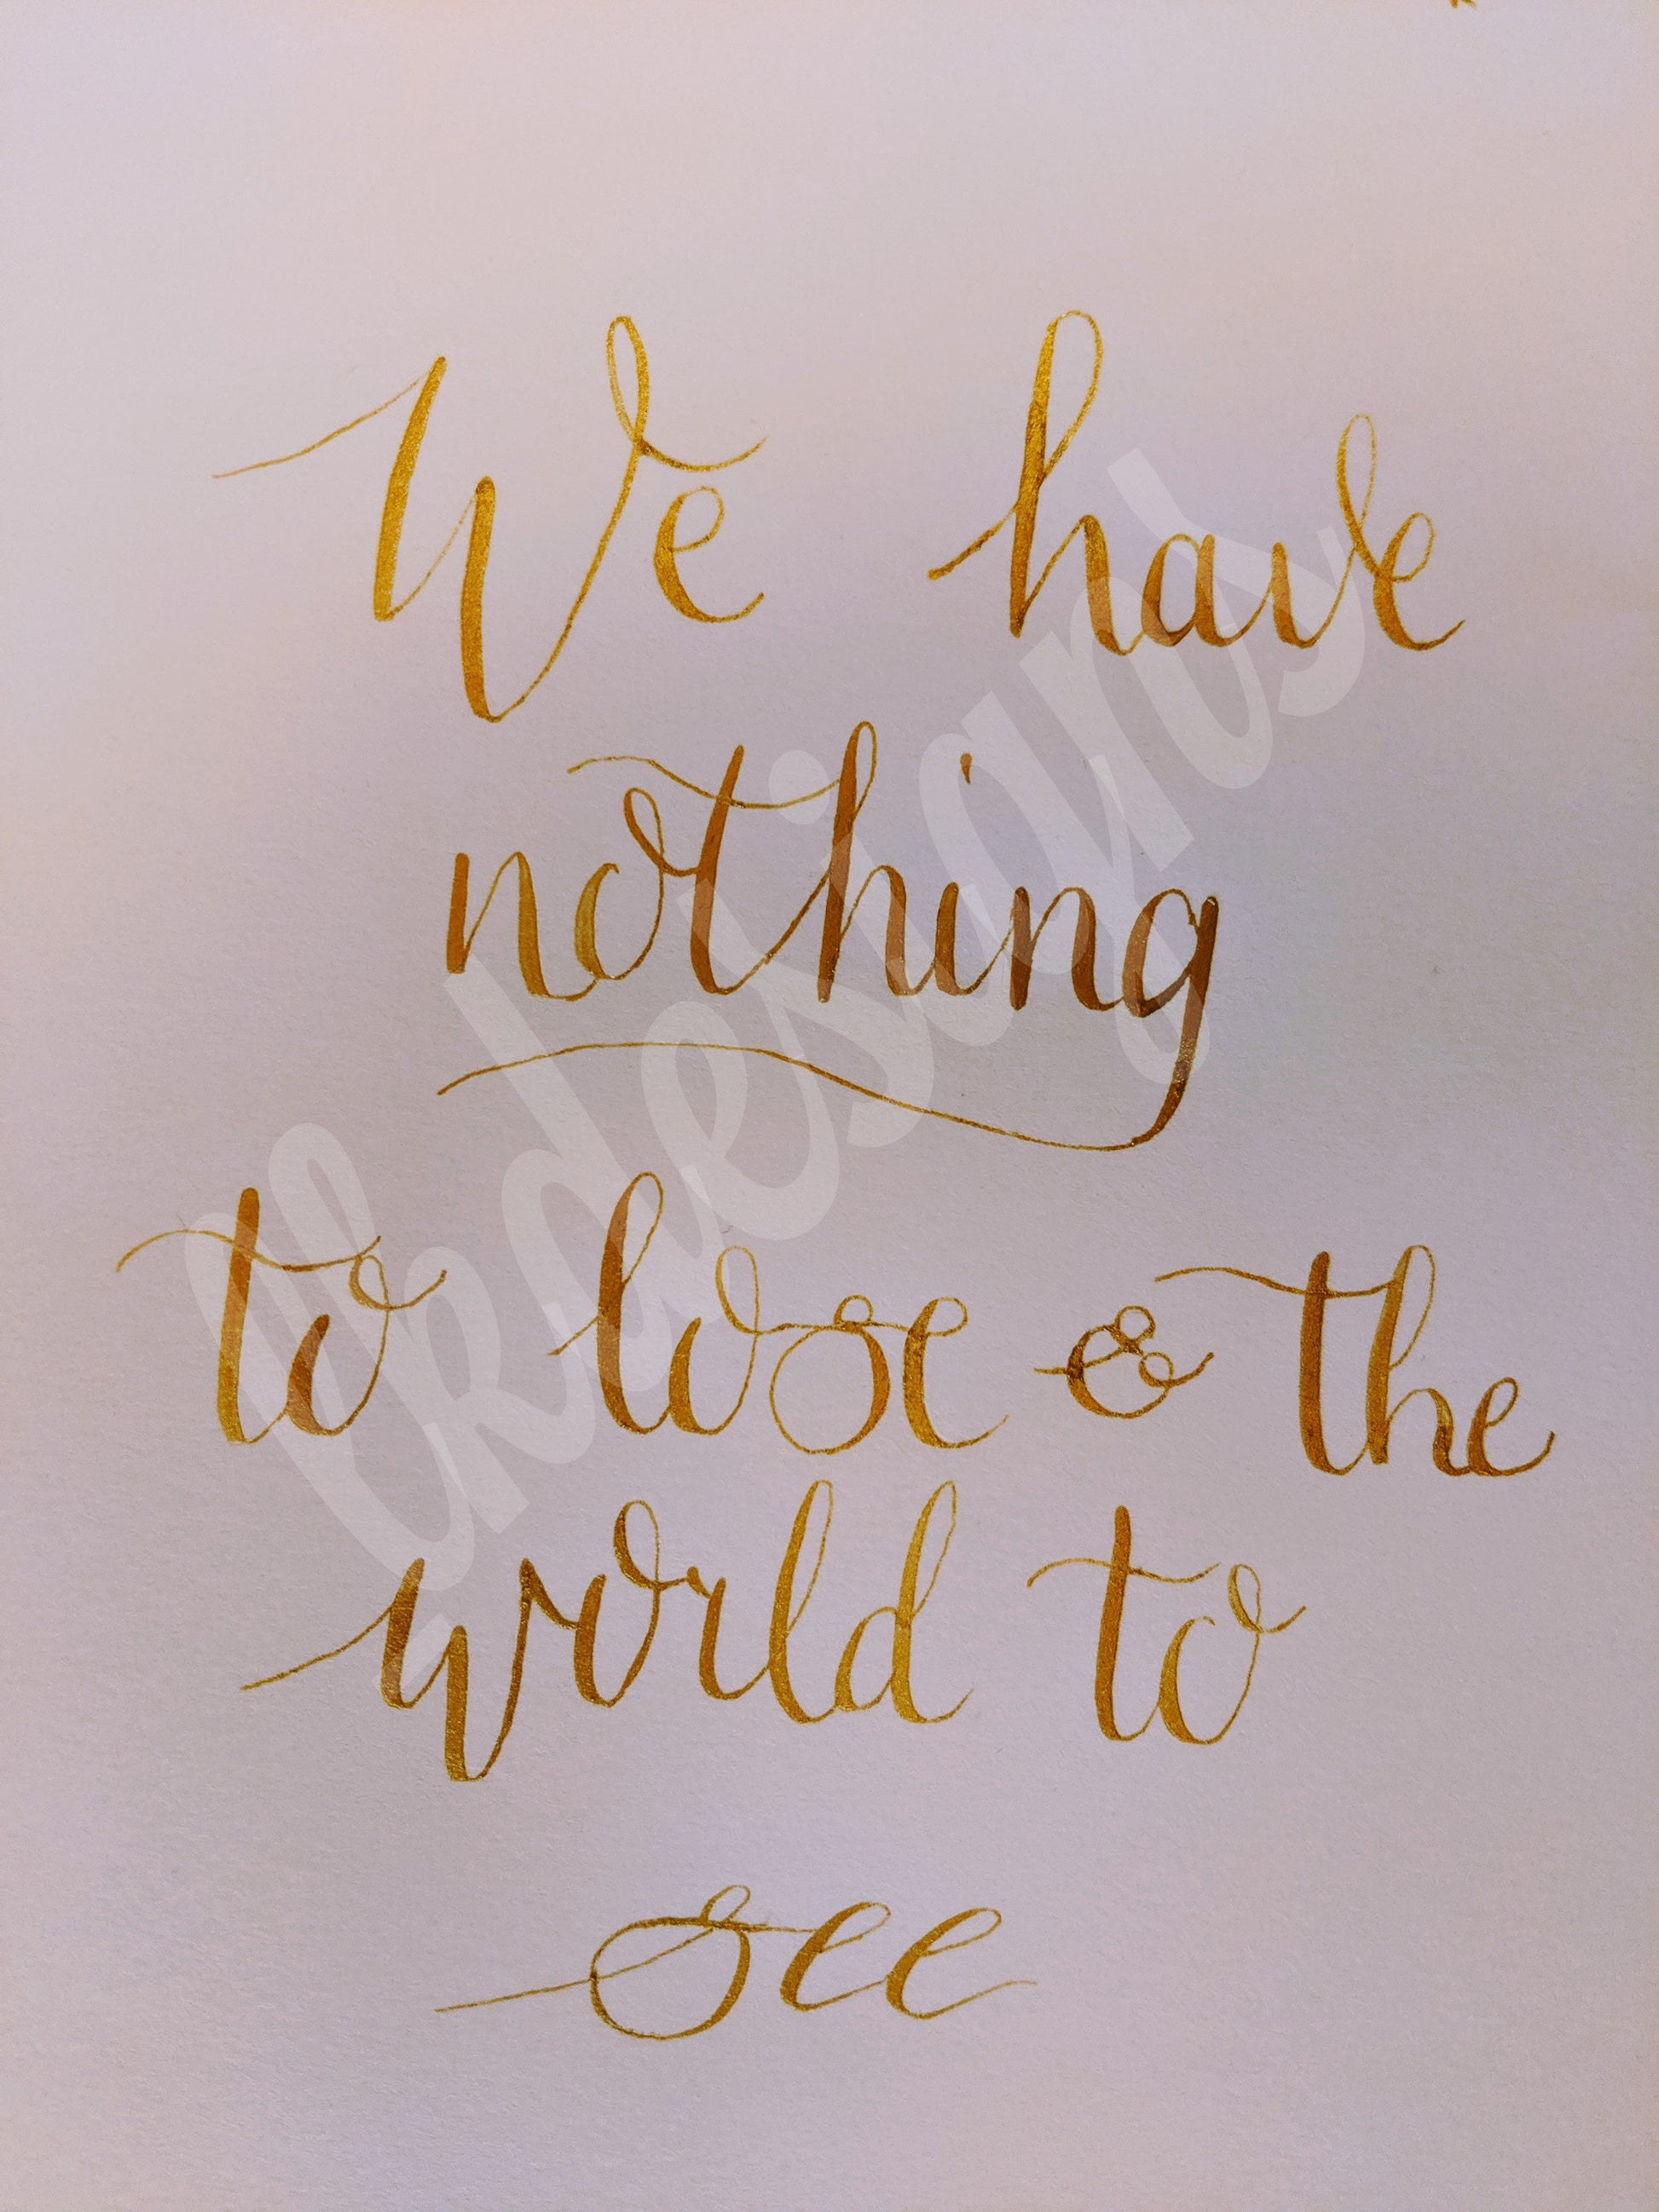 We have
nothing
to lose & the
world to
see